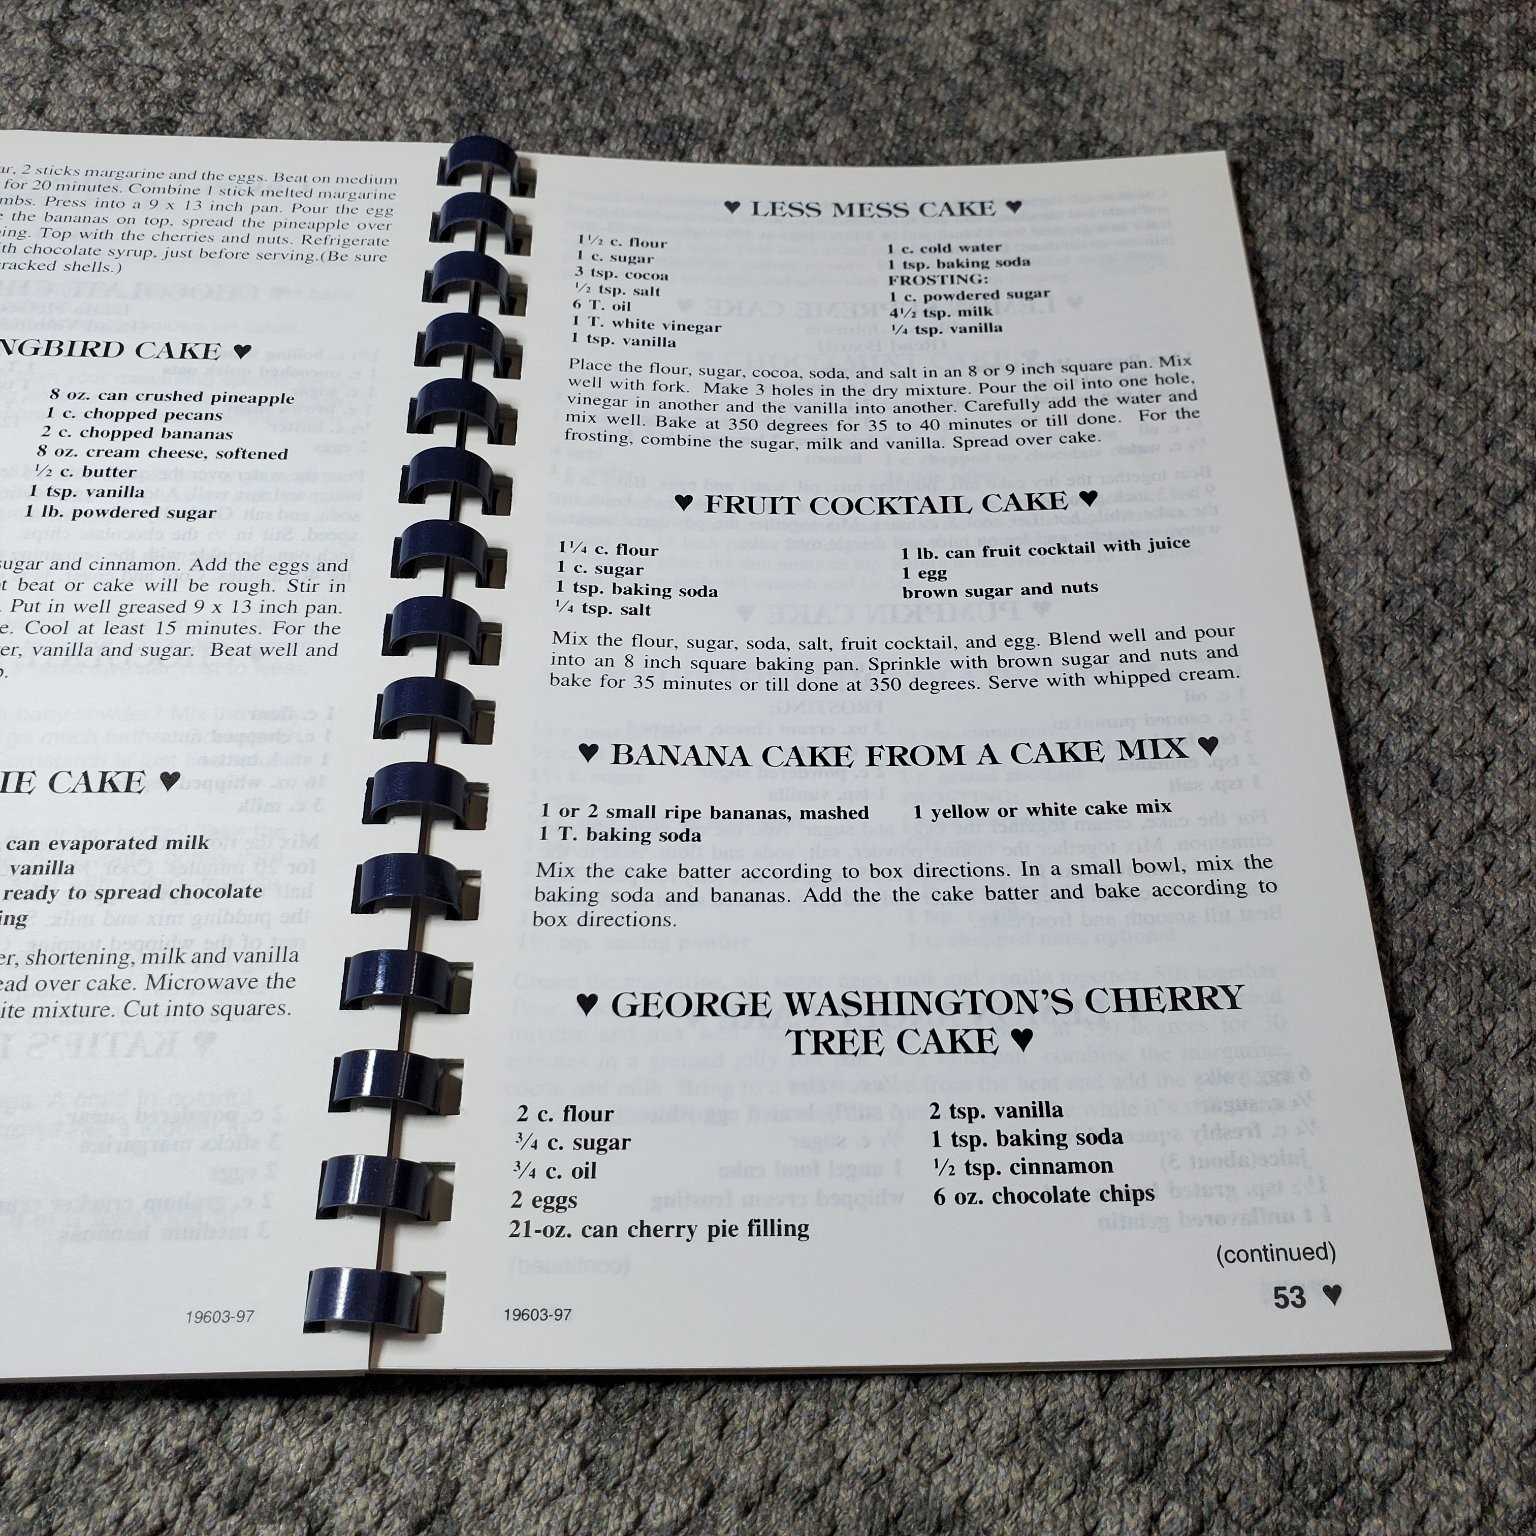 ar, 2 sticks margarine and the eggs. Beat on medium
for 20 minutes. Combine 1 stick melted margarine
mbs. Press into a 9 x 13 inch pan. Pour the egg
e the bananas on top, spread the pineapple over
ing. Top with the cherries and nuts. Refrigerate
th chocolate syrup, just before serving.(Be sure
racked shells.)
NGBIRD CAKE ♥
8 oz. can crushed pineapple
1 c. chopped pecans
2 c. chopped bananas
8 oz. cream cheese, softened
½ c. butter
1 tsp. vanilla
1 lb. powdered sugar
sugar and cinnamon. Add the eggs and
t beat or cake will be rough. Stir in
. Put in well greased 9 x 13 inch pan.
e. Cool at least 15 minutes. For the
er, vanilla and sugar. Beat well and
p.
IE CAKE ♥
can evaporated milk
vanilla
ready to spread chocolate
ing
er, shortening, milk and vanilla
ead over cake. Microwave the
ite mixture. Cut into squares.
19603-97
♥ LESS MESS CAKE ♥
1½ c. flour
1 c. sugar
3 tsp. cocoa
½ tsp. salt
6 T. oil
1 T. white vinegar
1 tsp. vanilla
1 c. cold water
1 tsp. baking soda
FROSTING:
1 c. powdered sugar
4½ tsp. milk
¼ tsp. vanilla
Place the flour, sugar, cocoa, soda, and salt in an 8 or 9 inch square pan. Mix
well with fork. Make 3 holes in the dry mixture. Pour the oil into one hole,
vinegar in another and the vanilla into another. Carefully add the water and
mix well. Bake at 350 degrees for 35 to 40 minutes or till done. For the
frosting, combine the sugar, milk and vanilla. Spread over cake.
♥ FRUIT COCKTAIL CAKE ♥
1¼ c. flour
1 c. sugar
1 tsp. baking soda
¼ tsp. salt
1 lb. can fruit cocktail with juice
1 egg
brown sugar and nuts
Mix the flour, sugar, soda, salt, fruit cocktail, and egg. Blend well and pour
into an 8 inch square baking pan. Sprinkle with brown sugar and nuts and
bake for 35 minutes or till done at 350 degrees. Serve with whipped cream.
♥ BANANA CAKE FROM A CAKE MIX ♥
1 or 2 small ripe bananas, mashed
1 T. baking soda
1 yellow or white cake mix
Mix the cake batter according to box directions. In a small bowl, mix the
baking soda and bananas. Add the the cake batter and bake according to
box directions.
♥ GEORGE WASHINGTON'S CHERRY
TREE CAKE ♥
2 c. flour
¾ c. sugar
¾ c. oil
2 eggs
21-oz. can cherry pie filling
2 tsp. vanilla
1 tsp. baking soda
½ tsp. cinnamon
6 oz. chocolate chips
(continued)
19603-97
53 ♥